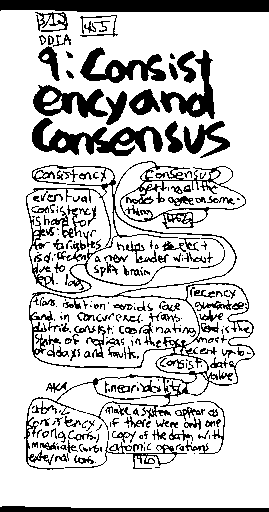 3/12 455
DDIA
9: Consist
ency and
Consensus
Consistency
Consensus
getting all the
nodes to agree on some-
thing
eventual
consistency
is hard for
devs: behvr
for variables
is different
due to
repl. lag
helps to elect
a new leader without
split brain
trans. isolation: avoids race
cond. in concurrenc. trans.
distrib. consist: coordinating
state of replicas in the face
of delays and faults.
recency
guarantee:
value
read is the
most
recent up-to-
date
value
consist
AKA
linearizability
atomic
consistency
strong consy
immediate consi
external cons.
make a system appear as
if there were only one
copy of the data, with
atomic operations